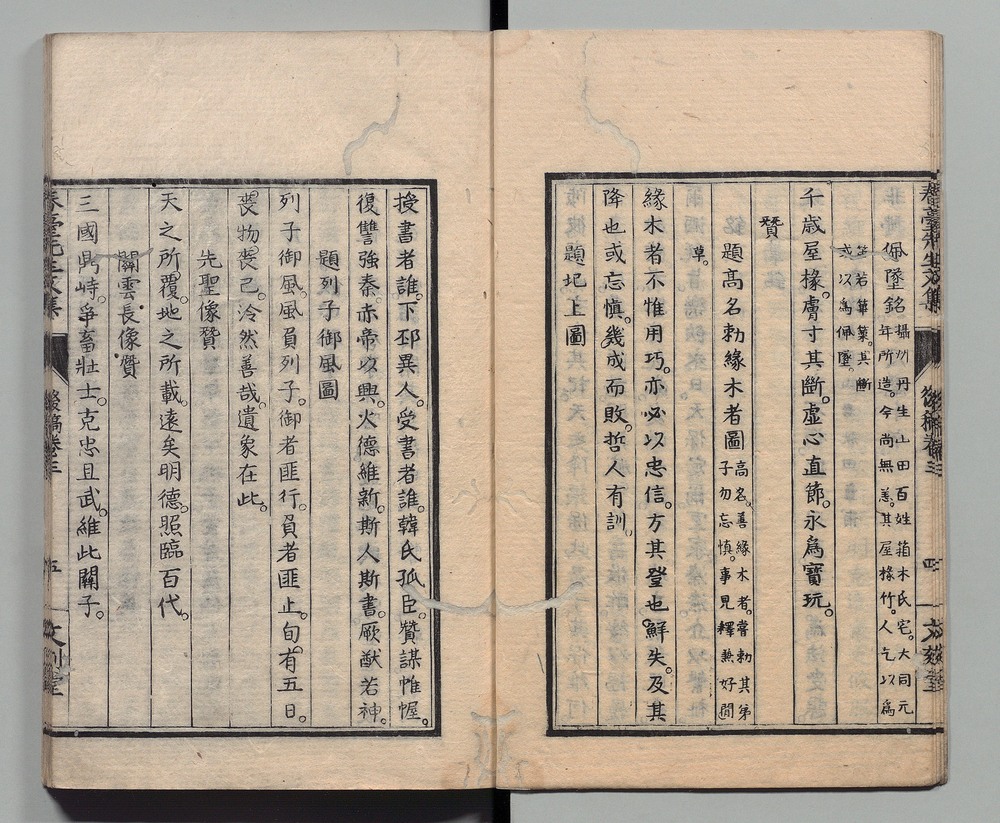 佩墜銘 攝州丹生山田百姓箱木氏宅大同元
年所造今尚無恙其屋椽竹人乞以爲
笛若篳篥其斷
或以爲佩墜
千歲屋椽膚寸其斷虛心直節永爲寶玩
贊
題高名勅緣木者圖 高名善緣木者嘗勅其弟
子勿忘慎事見釋兼好閒
草
緣木者不惟用巧亦必以忠信方其登也鮮失及其
降也或忘慎幾成而敗哲人有訓
題圯上圖
春臺先生文集 後稿卷三 四
授書者誰下邳異人受書者誰韓氏孤臣贊謀帷幄
復讐強秦赤帝以興火德維新斯人斯書厥猷若神
題列子御風圖
列子御風風員列子御者匪行員者匪止旬有五日
喪物喪己泠然善哉遺象在此
先聖像贊
天之所覆地之所載遠矣明德照臨百代
關雲長像贊
三國鼎峙爭畜壯士克忠且武維此關子
春臺先生文集 後稿卷三 五